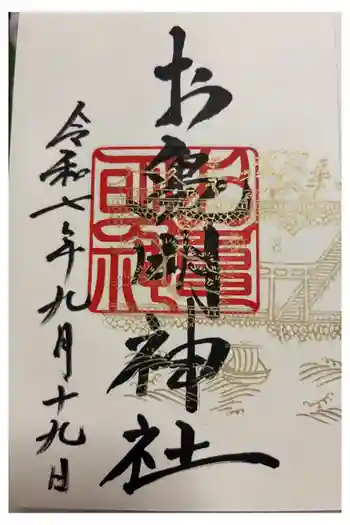 お明神社
令和七年九月十九日